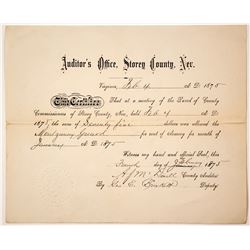 Auditor's Office, Storey County, Nev.
Virginia, Feb 4 A.D. 1875
This Certifies That at a meeting of the Board of County
Commissioners of Storey Co., Nev., held Feb 4 A.D.
1875 the sum of Seventy five dollars was allowed the
Montgomery Guard for rent of armory for month of
January A.D. 1875
Witness my hand and official Seal, this
Fourth day of February 1875
Auditor
By Geo. C. Deputy